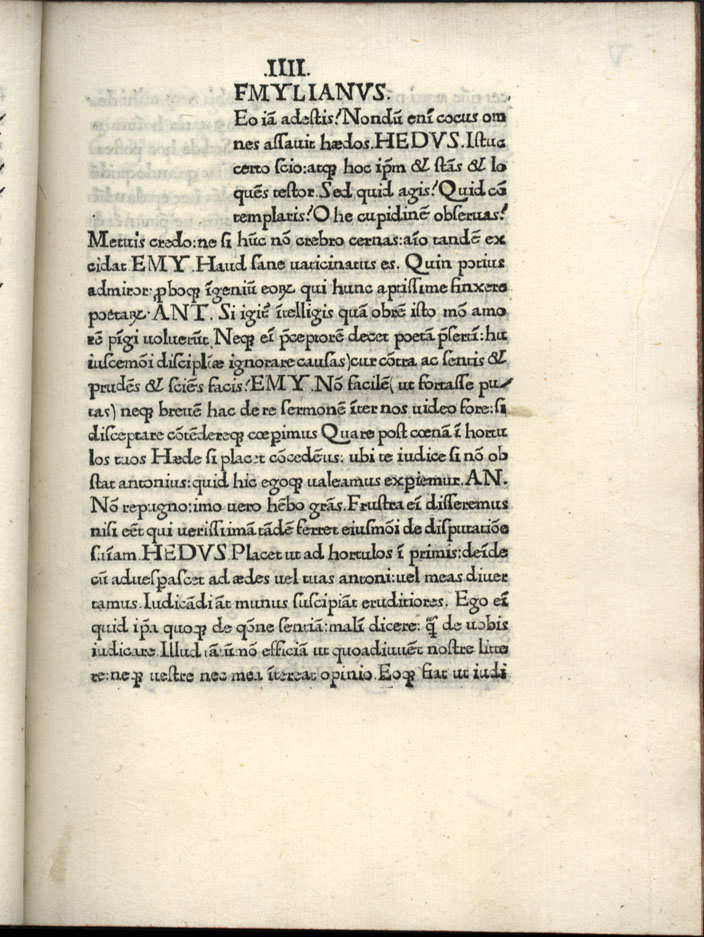 .IIII.
FMYLIANVS.
Eo iā adestis?Nondū enī cocus om
nes assauit hædos.HEDVS.Istuc
certo scio:atq; hoc ip̄m & stās & lo
quēs testor.Sed quid agis?Quid cō
templaris?O he cupidinē obseruas?
Metuis credo:ne si hūc nō crebro cernas:aīo tandē ex
cidat.EMY.Haud sane uaticinatus es. Quin potius
admiror:ꝓboq; īgeniū eoꝝ qui hunc aptissime finxere
poetaꝝ.ANT. Si igit̄ ītelligis quā obrē isto mō amo
rē pīgi uoluerūt Neq; eī p̄ceptorē decet poetā p̄sertī:hu
iuscemōi disciplīæ ignorare causas)cur cōtra ac sentis &
prudēs & sciēs facis?EMY.Nō facilē( ut fortasse pu
tas) neq; breuē hac de re sermonē īter nos uideo fore:si
disceptare cōtēdereq; cœpimus Quare post cœnā ī hortu
los tuos Hæde si placet cōcedēus: ubi te iudice si nō ob
stat antonius:quid hic egoq; ualeamus exꝑiemur.AN.
Nō repugno:imo uero hēbo grās.Frustra eī disseremus
nisi eēt qui uerissimā tādē ferret eiusmōi de disputatiōe
s:īam.HEDVS.Placet ut ad hortulos ī primis:deīde
cū aduesꝑascet ad ædes uel tuas antoni:uel meas diuer
tamus.Iudicādi āt munus suscipiāt eruditiores. Ego eī
quid ip̄a quoq; de q̄one sentiā:malī dicere: q̄ de uobis
iudicare.Illud nō efficiā ut quoadiuuēt nostre litte
re:neq; uestre nec mea ītereat opinio.Eoq; fiat ut iudi